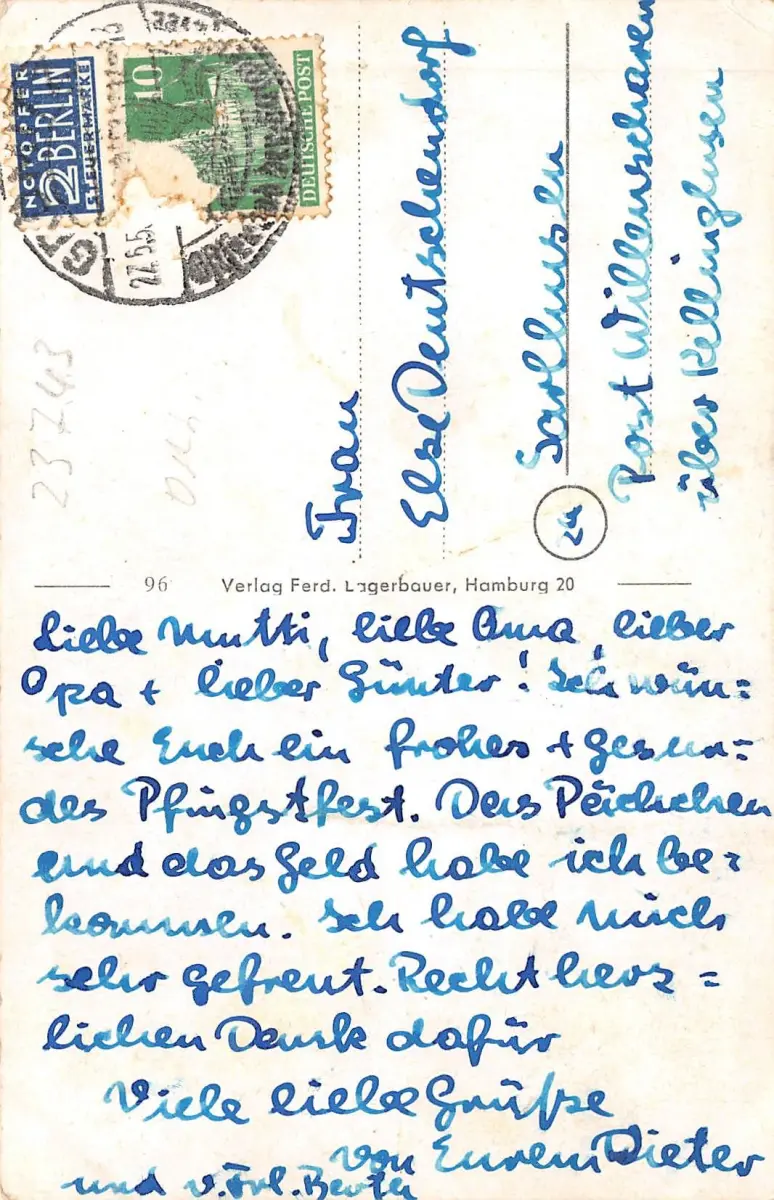 NOTOPFER
2 BERLIN
STEUERMARKE
10
DEUTSCHE POST
27.5.5
23743
Frau
Else Deutschendorf
Sarlhusen
24
Post Willenscharen
über Kellinghusen
96 Verlag Ferd. Lagerbauer, Hamburg 20
Liebe Mutti, liebe Oma, lieber
Opa + lieber Günter! Ich wün=
sche Euch ein frohes + gesun=
des Pfingstfest. Das Päckchen
und das Geld habe ich be=
kommen. Ich habe mich
sehr gefreut. Recht herz=
lichen Dank dafür
Viele liebe Grüße
von Eurem Dieter
und v. Frl.